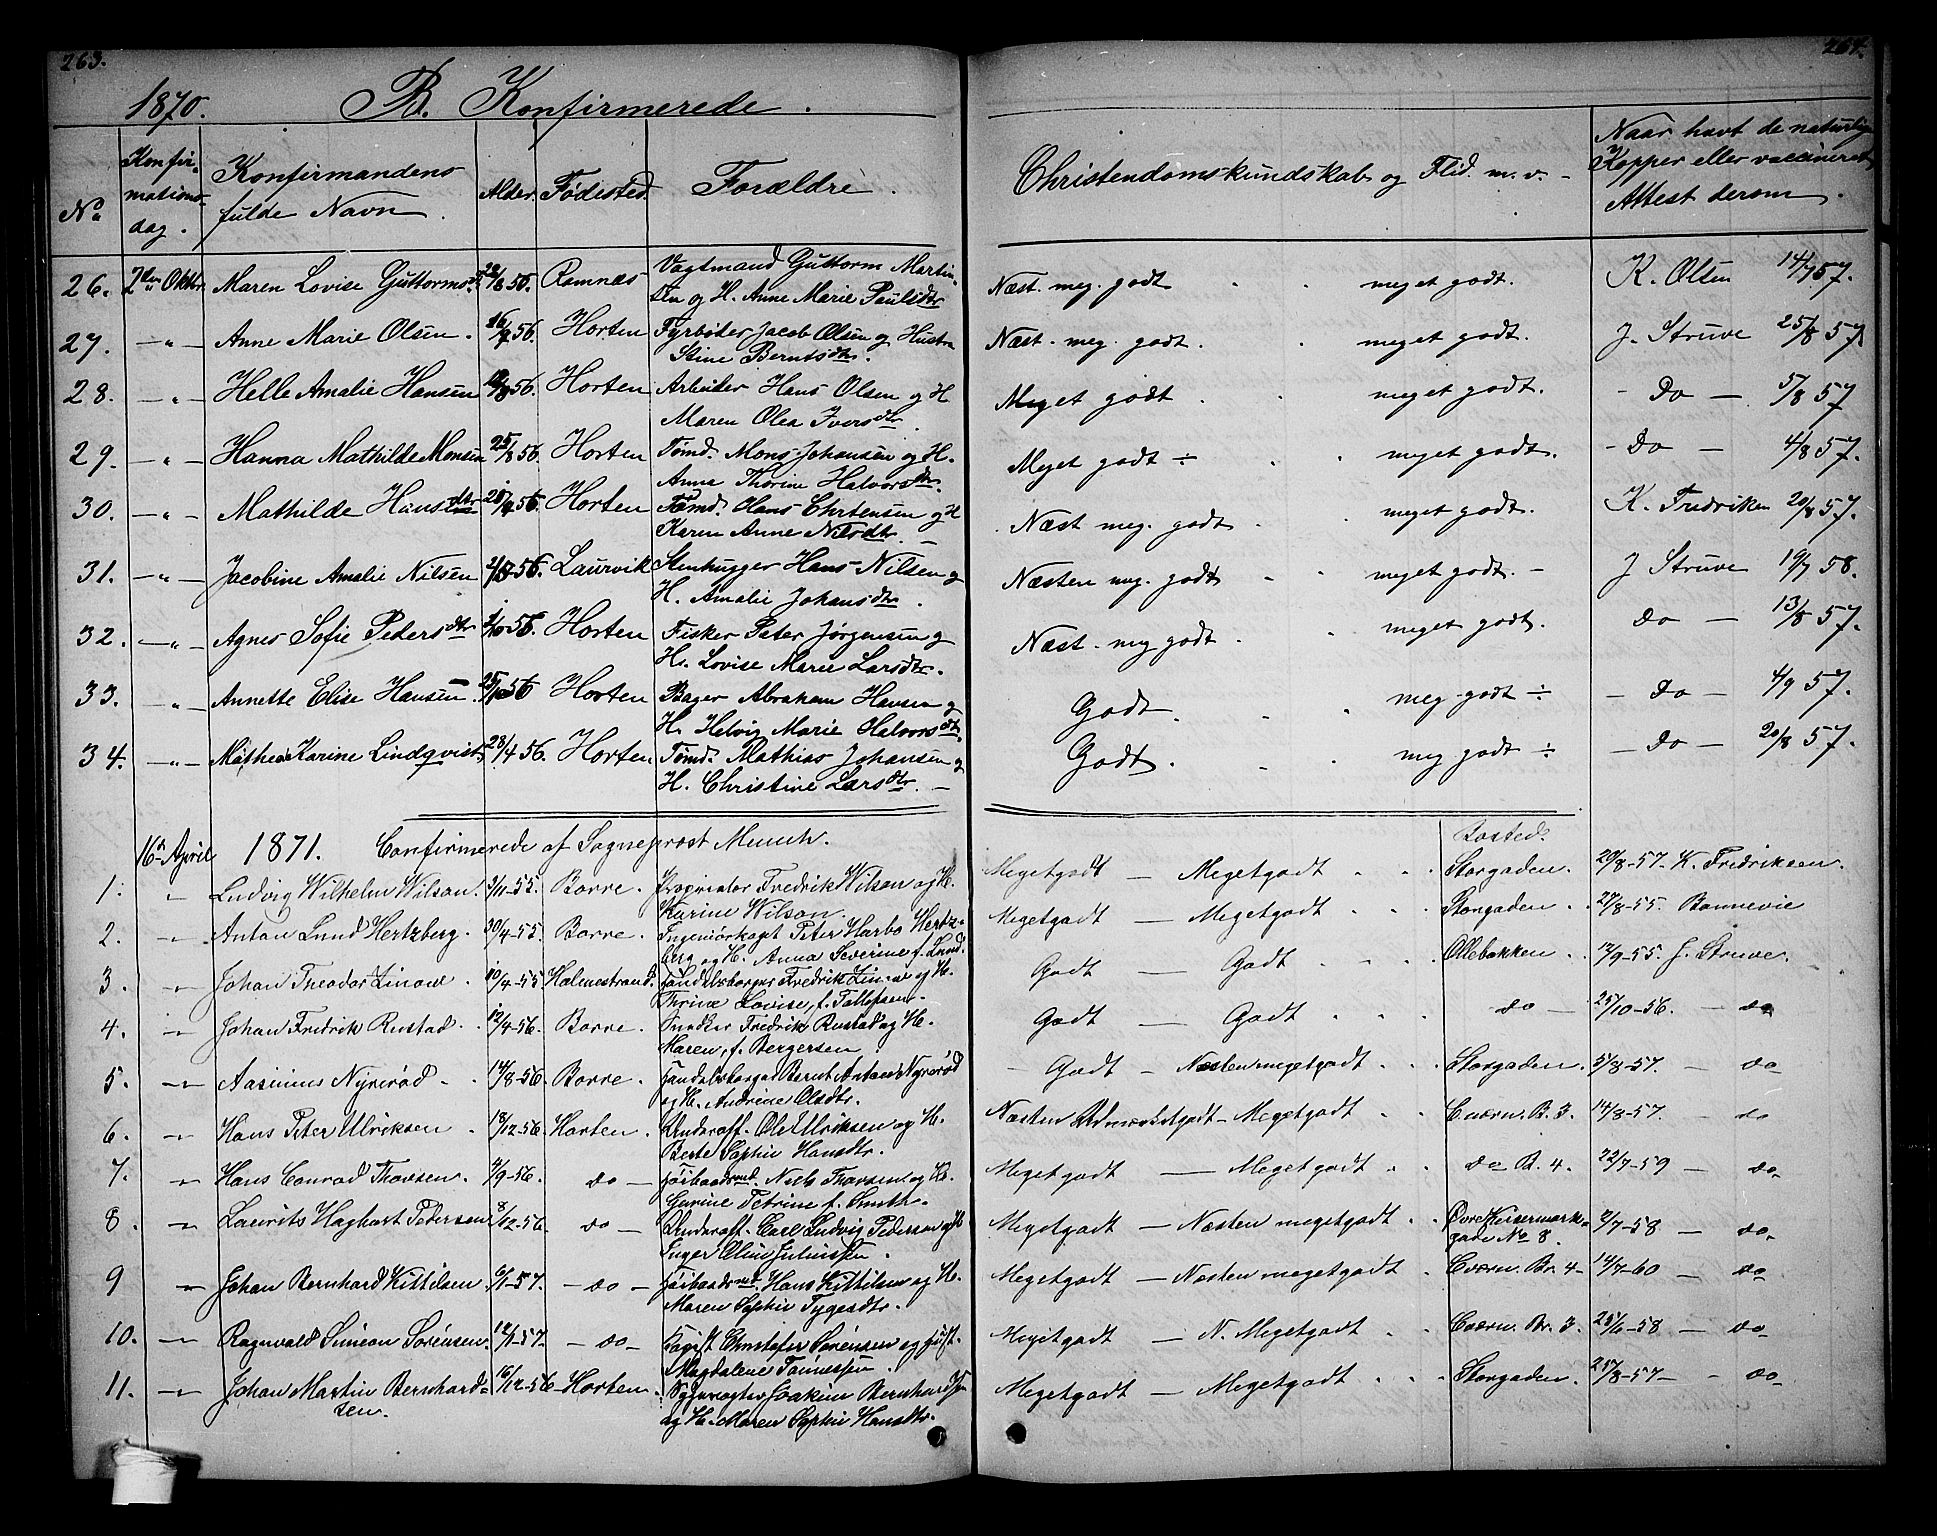 263.
264.
1870. B. Konfirmerede.
No
Konfirmationsdag.
Konfirmandens fulde Navn.
Alder.
Fødested.
Forældre.
Christendomskundskab og Flid. m. v. -
Naar havt de naturlige Kopper eller vaccineret Attest derom.
26. 2den Oktbr. Maren Lovise Guttormsdt. Ramnæs Vagtmand Guttorm Martin- Næst. meg. godt meget godt. K. Olsen 14/7 57.
sen og H. Anne Marie Paulsdtr
27. -"- Anne Marie Olsen. 16/9 56. Horten Fyrbøder Jacob Olsen og Hustru Næst. meg. godt. meget godt. J. Struve 25/8 57
Stine Berntsdtr.
28. -"- Helle Amalie Hansen 56. Horten Arbeider Hans Olsen og H Meget godt meget godt. - Do - 5/8 57
Maren Olea Iversdtr.
29. -"- Hanna Mathilde Monsen 25/8 56. Horten Tømd. Mons Johansen og H. Meget godt ÷ meget godt. - Do - 4/8 57.
Anna Thorine Halvorsdtr.
30. -"- Mathilde Hansdtr 56. Horten Tømd. Hans Chrtensen og H Næst meg. godt meget godt. K. Fredriksen 20/8 57.
Karen Anne Nilsdtr. -
31. -"- Jacobine Amalie Nilsen 56. Laurvik Stenhugger Hans Nilsen og Næsten meg. godt meget godt. - J Struve 19/7 58.
H. Amalie Johansdtr.
32. -"- Agnes Sofie Pedersdtr 56. Horten Fisker Peter Jørgensen og Næst. meg godt. meget godt. Do - 13/8 57.
H. Lovise Marie Larsdtr.
33. -"- Annette Elise Hansen. 25/10 56 Horten Bager Abraham Hansen og Godt. meg godt ÷ - Do - 4/9 57.
H. Helvig Marie Halvorsdtr.
34. -"- Mathea Karine Lindqvist 28/4 56. Horten Tømd. Mathias Johansen og Godt. meg godt ÷ - Do - 20/8 57.
H. Christine Larsdtr. -
16de April 1871. Confirmerede af Sogneprost Munch. Bosted.
1. " Ludvig Wilhelm Wilson. 55. Borre. Proprietær Fredrik Wilson og H. Megetgodt - Megetgodt Storgaden. 20/8-57. K. Fredriksen
Karine Wilson.
2. " Anton Lund Hertzberg. 30/4-55. Borre. Ingeniørkapt Peter Harbo Hertz- Megetgodt - Megetgodt Storgaden. 27/8-55 Bonnevie
berg og H. Anna Severine f. Lund.
3. " Johan Theodor Linow. 10/4-55 Holmestrand. Handelsborger Fredrik Linow og H. Godt - Godt Ollebakken. 17/9-55. J. Struve.
Thrine Lovise, f. Tollefsen.
4. " Johan Fredrik Rustad. 12/4-56. Borre. Snedker Fredrik Rustad og H. Godt - Godt do - 25/10-56. - do
Maren, f. Bergersen.
5. " Aasinus Nyrerød. 14/8-56. Borre. Handelsborger Bernt Antons Nyrerød Godt - Næsten megetgodt Storgaden. 5/8-57. - do
og H. Andrine Olsdtr.
6. " Hans Peter Ulriksen. 18/12-56. Horten. Underoff. Ole Ulriksen og H. Næsten Udmærketgodt - Megetgodt Cværn. B. 3. 14/8-57. - do
Berte Sophie Hansdtr.
7. " Hans Conrad Thorsen. 4/9-56. do - Høibaadsmd. Niels Thorsen og H. Megetgodt - Megetgodt do B. 4. 22/7-59 - do
Gurine Petrine f. Smith.
8. " Laurits Haghart Pedersen 8/12-56. do - Underoff. Carl Ludvig Pedersen og H Megetgodt - Næsten megetgodt Øvre Keisermark- 2/7-58 - do
Inger Oline Juliussen. gade No 8.
9 " Johan Bernhard Kittilsen. 6/1-57. - do - Høibaadsmd. Hans Kittilsen og H. Megetgodt - Næsten megetgodt. Cværn. Br. 4 - 14/7-60 - do
Maren Sophie Tygesdtr.
10. " Ragnvald Simeon Sørensen. 19/1-57. - do - Christofer Sørensen og Hust. Megetgodt - N. Megetgodt Cværn. Br. 3. 25/6-58 - do
Magdalene Tønnessen.
11. " Johan Martin Bernhard- 16/12-56 - Horten. Joakim Bernhardsen Megetgodt - Megetgodt Storgaden. 25/8-57 - do
sen. og H. Maren Sophie Hansdtr.